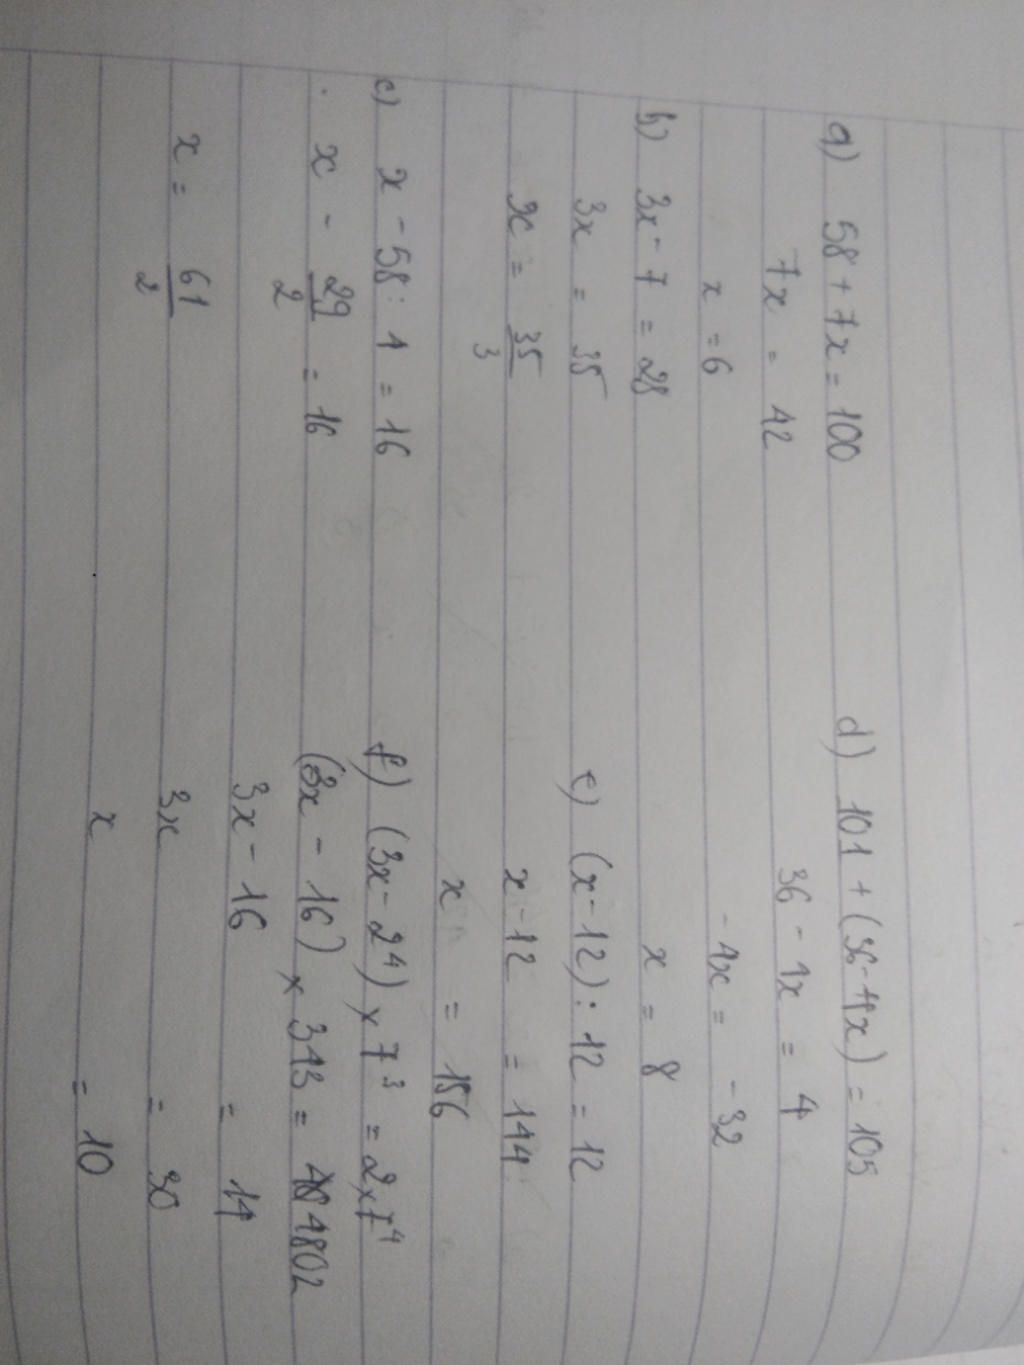 a) 58 + 7x = 100
7x = 42
x = 6
b) 3x - 7 = 28
3x = 35
x = 35/3
c) x - 58 : 4 = 16
x - 29/2 = 16
x = 61/2
d) 101 + (36 - 4x) = 105
36 - 4x = 4
- 4x = - 32
x = 8
e) (x - 12) : 12 = 12
x - 12 = 144
x = 156
f) (3x - 2⁴) x 7³ = 2 x 7⁴
(3x - 16) x 343 = 4802
3x - 16 = 14
3x = 30
x = 10